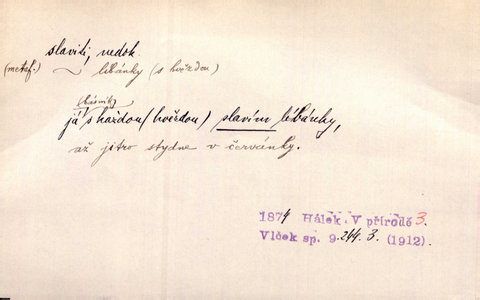 slaviti, nedok.
(metaf.) ~ líbánky (s hvězdou)
(básník)
já s každou (hvězdou) slavím líbánky,
až jitro stydne v červánky.
1874 Hálek V přírodě 3.
Vlček sp. 9.244.3. (1912).